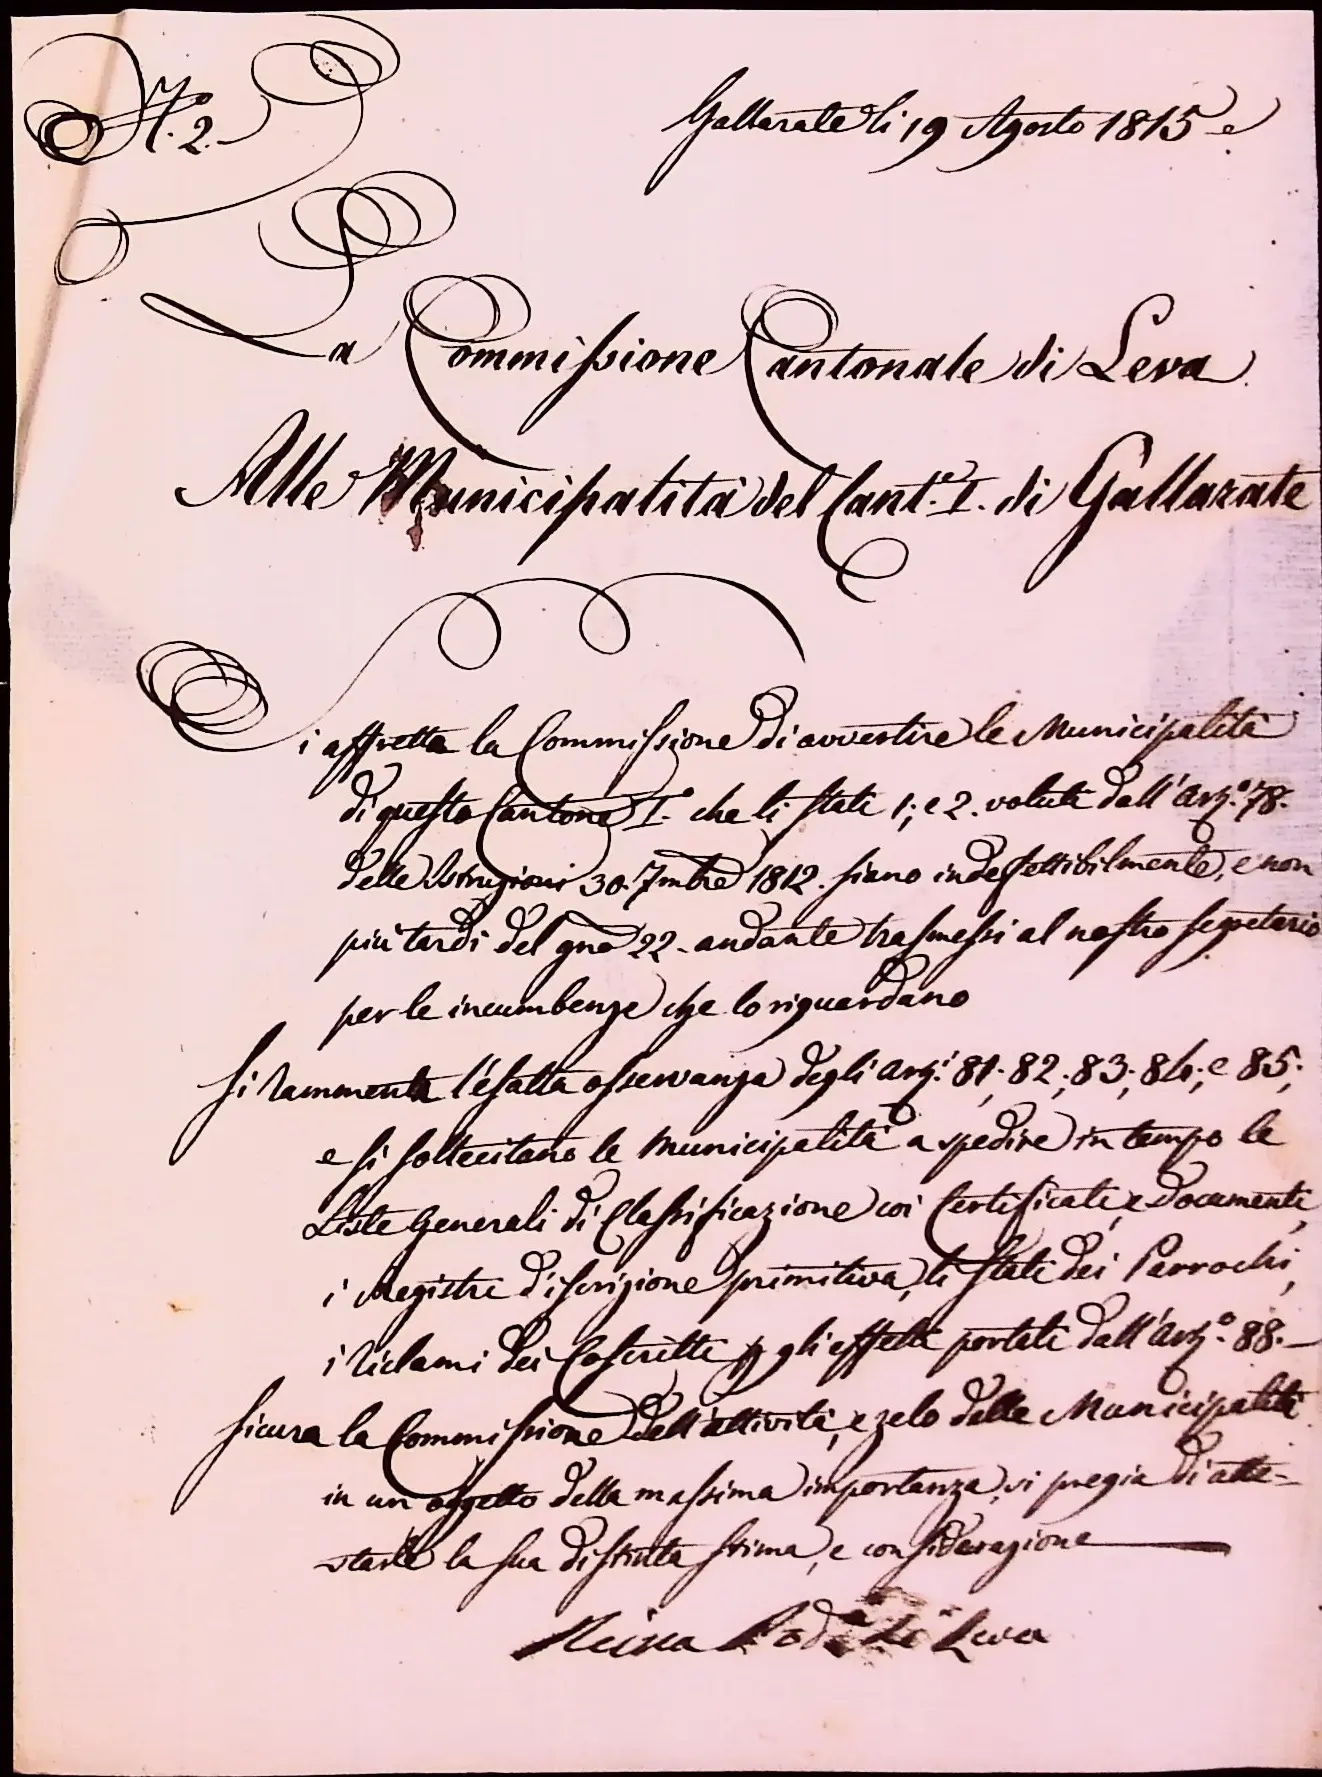 N.° 2.
Gallarate li 19 Agosto 1815
La Commissione Cantonale di Leva
Alle Municipalità del Cant.e I. di Gallarate
Si affretta la Commissione di avvertire le Municipalità
di questo Cantone I.° che li Stati 1; e 2. voluti dall'Art.° 78.
delle Istruzioni 30. 7mbre 1812. siano indefettibilmente, e non
più tardi del gno 22. andante trasmessi al nostro Segretario
per le incumbenze che lo riguardano
Si rammenta l'esatta osservanza degli Art.i 81; 82; 83; 84; e 85;
e si sollecitano le Municipalità a spedire in tempo le
Liste Generali di Classificazione coi Certificati, e Documenti,
i Registri d'iscrizione primitiva, li Stati dei Parrochi,
i riclami dei Coscritti p gli effetti portati dall'Art.° 88. –
Sicura la Commissione dell'attività, e zelo delle Municipalità
in un oggetto della massima importanza, si pregia di atte-
starle la sua distinta stima, e considerazione
Leva